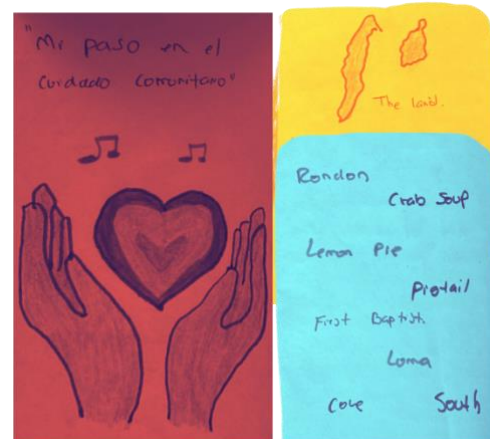 "Mi paso en el
Cuidado Comunitario"
The land.
Rondon
Crab Soup
Lemon Pie
Pigtail
First Baptist
Loma
Cove
South